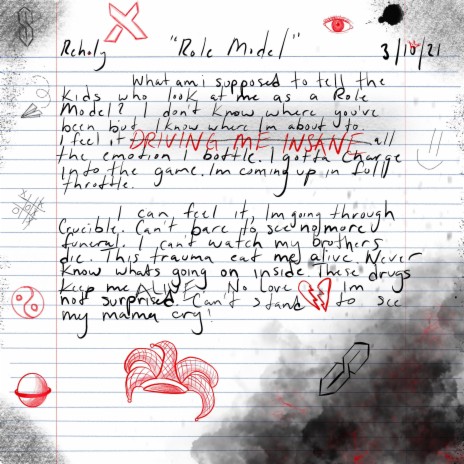 Reholy "Role Model" 3/10/21
What am i supposed to tell the
kids who look at me as a Role
Model? I don't know where you've
been but I know where I'm about to.
I feel it DRIVING ME INSANE all
the emotion I bottle. I gotta charge
Into the game. I'm coming up in full
throttle.
I can feel it, I'm going through
Crucible. Can't bare to see no more
funeral. I can't watch my brothers
die. This trauma eat me alive. Never
know whats going on inside. These drugs
keep me ALIVE. No Love I'm
not surprised. Can't stand to see
my mama cry!